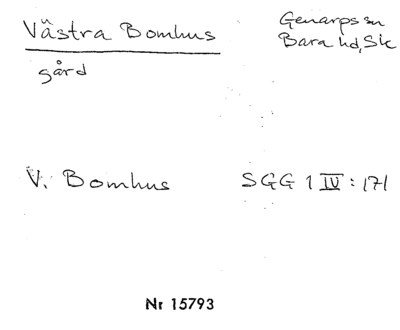 Västra Bomhus
Genarps sn
Bara hd, Sk
gård
V. Bomhus
SGG 1 IV: 171
Nr 15793